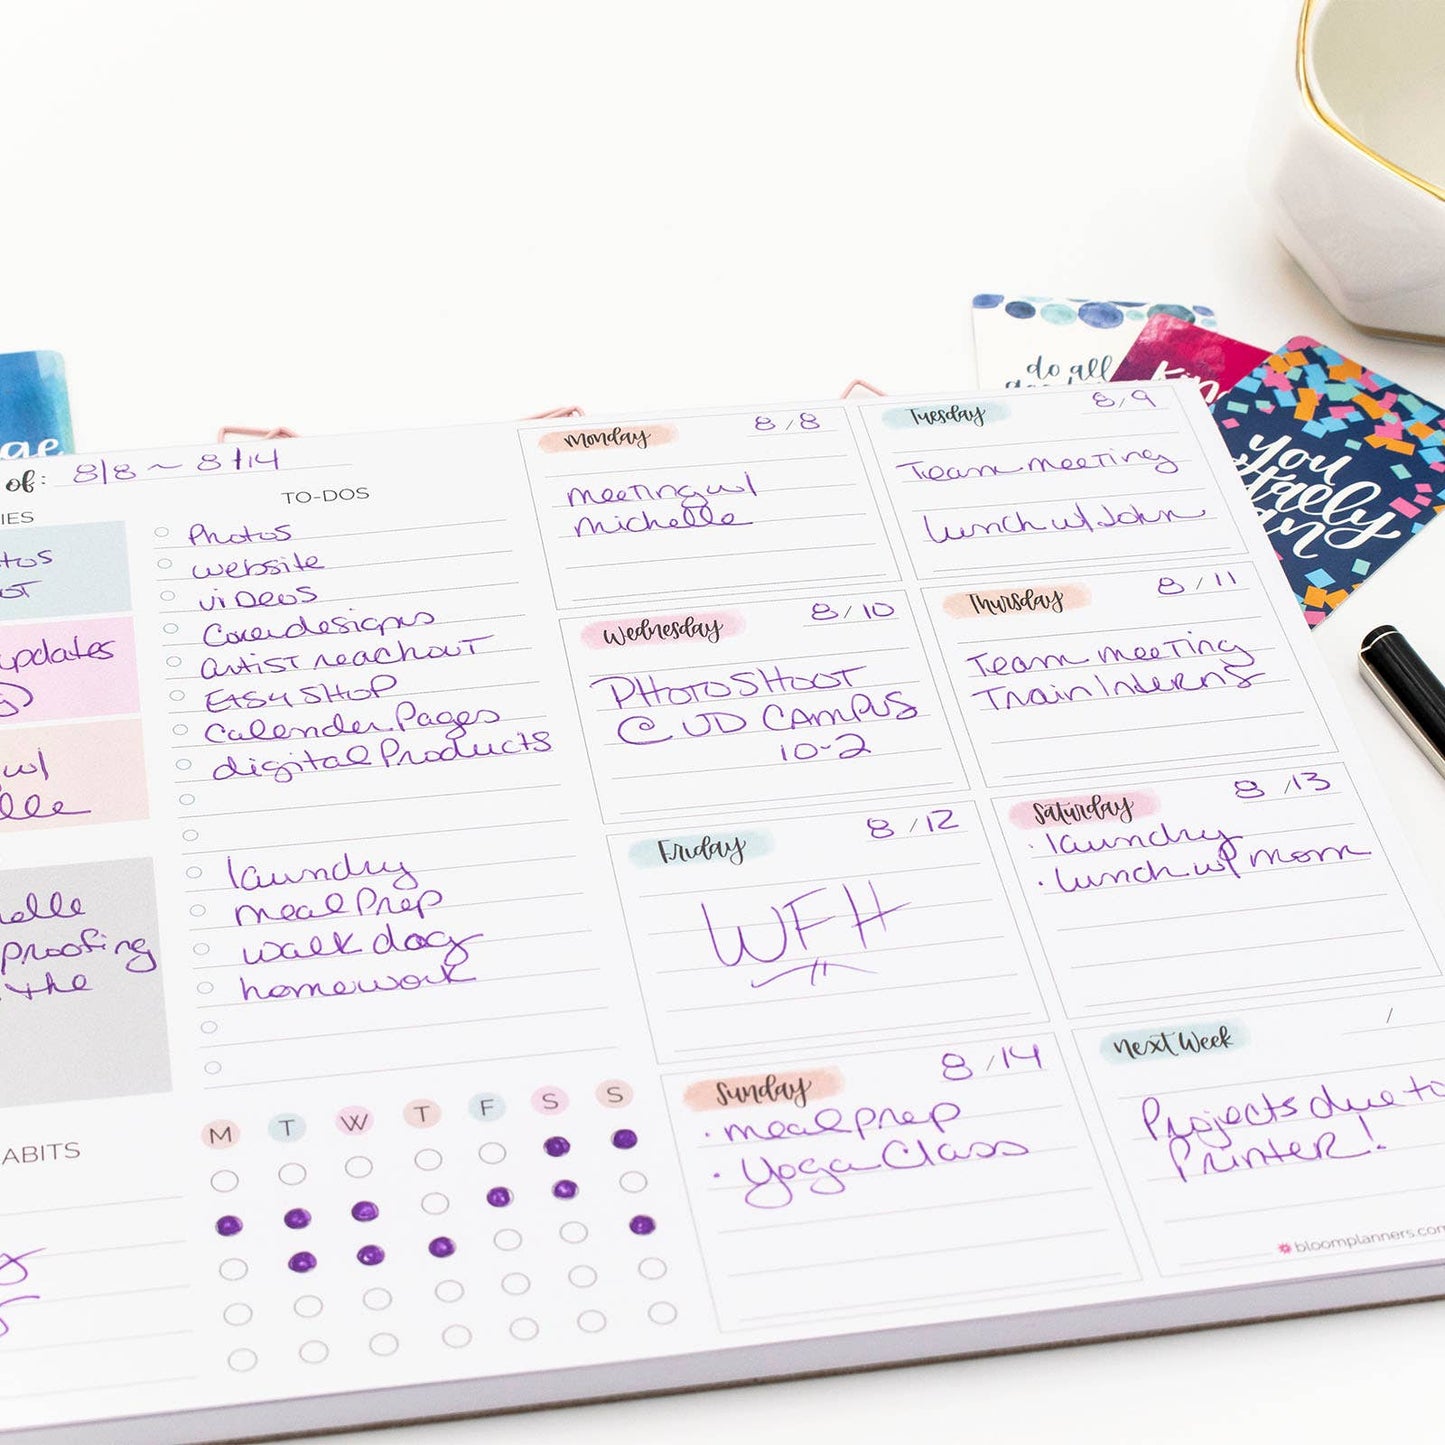 of: 8/8 ~ 8/14
TO-DOS
Photos
website
videos
Cover designs
artist reachout
Etsy SHOP
Calender Pages
digital Products
laundry
meal Prep
walk dog
homework
updates
w/
proofing
the
ABITS
M T W T F S S
Monday 8/8
meeting w/
michelle
Tuesday 8/9
Team meeting
lunch w/ John
Wednesday 8/10
PHOTOSHOOT
@ UD CAMPUS
10-2
Thursday 8/11
Team meeting
Train Interns
Friday 8/12
WFH
Saturday 8/13
· laundry
· lunch w/ mom
Sunday 8/14
· meal prep
· Yoga Class
Next Week /
Projects due to
Printer!
bloomplanners.com
do all
you
totally
can